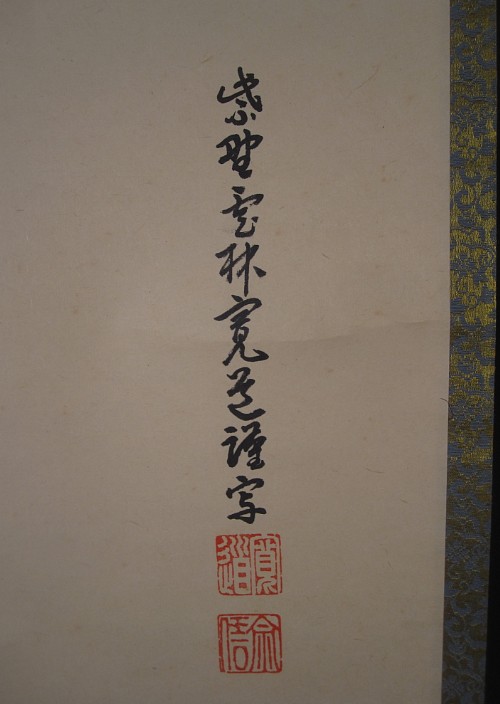 紫野雲林寛道謹写
寛道